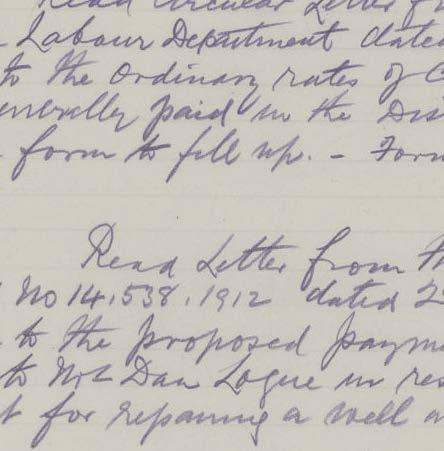 Read Circular Letter f
Labour Department date
to the Ordinary rates of C
enerally paid in the Dis
form to fill up. - Form
Read Letter from Th
No 14,538, 1912 dated 2
to the proposed payme
to Mr Dan Logue in res
t for repairing a well a